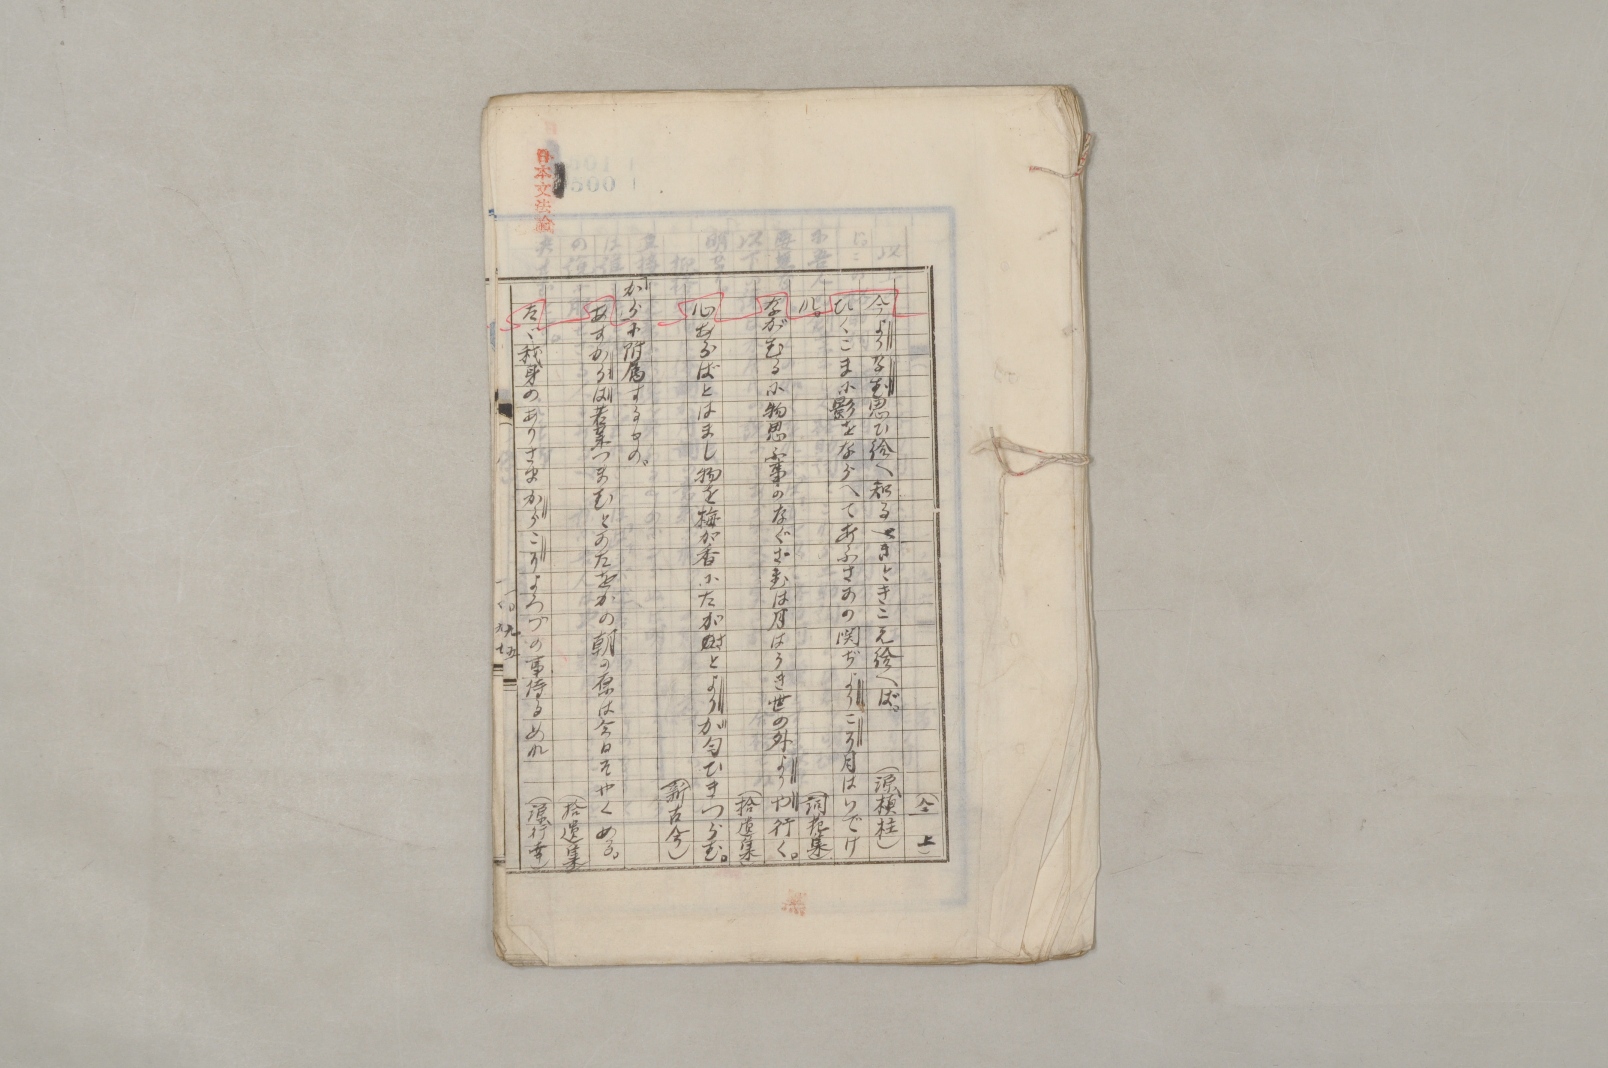 今よりなむ思ひ給へ知るべきときこえ給へば。
(源槙柱)
ひくこまに影をならべてあふさかの関ぢよりこそ月はいでけ
れ。
(詞花集)
ながむるに物思ふ事のなぐさむは月はうき世の外よりや行く。
(拾遺集)
心あらばとはまし物を梅が香にたが里とよりか匂ひきつらむ。
(新古今)
からに附属するもの。
あすからは若菜つまむとかたをかの朝の原は今日ぞやくめる。
(拾遺集)
たゞ我身のありさまからこそよろづの事侍るめれ
(源行幸)
日本文法論